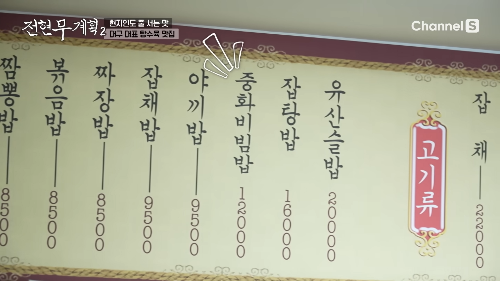 전현무계획2
현지인도 줄 서는 맛
대구 대표 탕수육 맛집
Channel S
짬뽕밥 8500
볶음밥 8500
짜장밥 8500
잡채밥 9500
야끼밥 9500
중화비빔밥 12000
잡탕밥 16000
유산슬밥 20000
고기류
잡채 22000